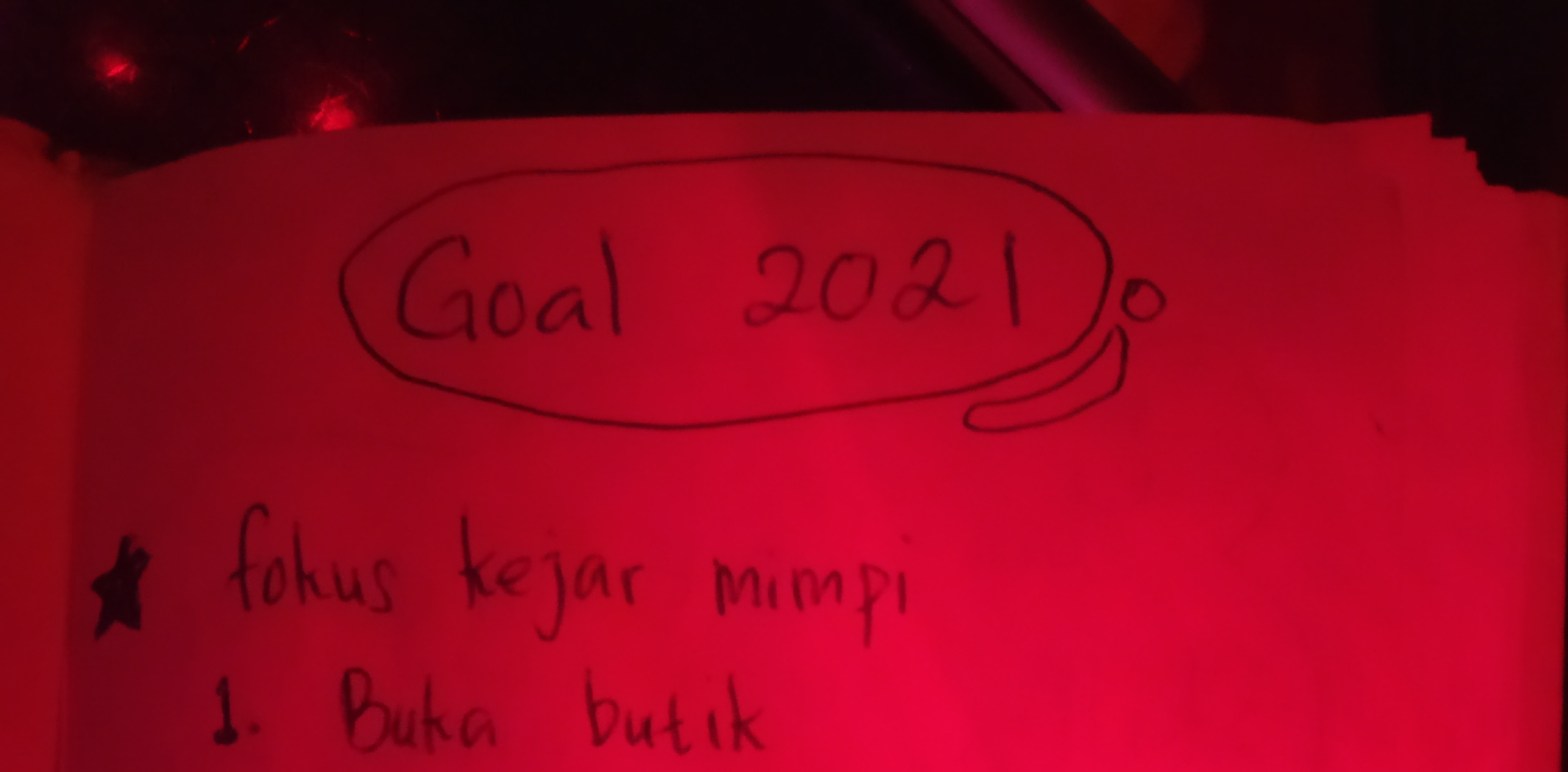 Goal 2021
★ fokus kejar mimpi
1. Buka butik